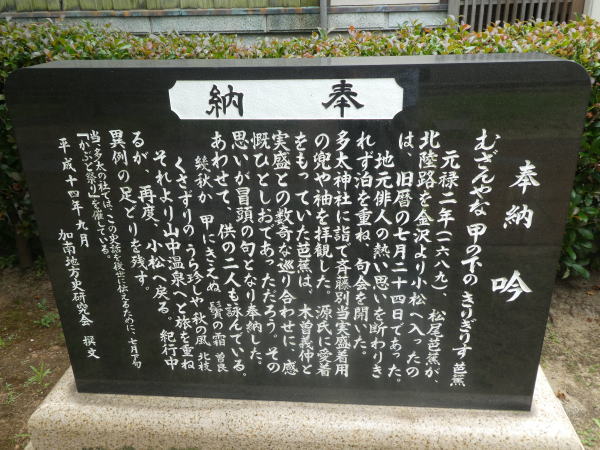 奉納
奉納　吟
むざんやな 甲の下の きりぎりす 芭蕉
元禄二年(一六八九)、松尾芭蕉が、
北陸路を金沢より小松へ入ったの
は、旧暦の七月二十四日であった。
地元俳人の熱い思いを断わりき
れず泊を重ね、句会を開いた。
多太神社に詣で斉藤別当実盛着用
の兜や袖を拝観した。源氏に愛着
をもっていた芭蕉は、木曽義仲と
実盛との数奇な巡り合わせに、感
慨ひとしおであっただろう。その
思いが冒頭の句となり奉納した。
あわせて、供の二人も詠んでいる。
幾秋か 甲にきえぬ 鬢の霜 曽良
くさずりの うら珍しや 秋の風 北枝
それより山中温泉へと旅を重ね
るが、再度、小松へ戻る、紀行中
異例の足どりを残す。
当、多太の社では、この史話を後世に伝えるために、七月下旬
「かぶと祭り」を催している。
平成十四年九月　加南地方史研究会　撰文